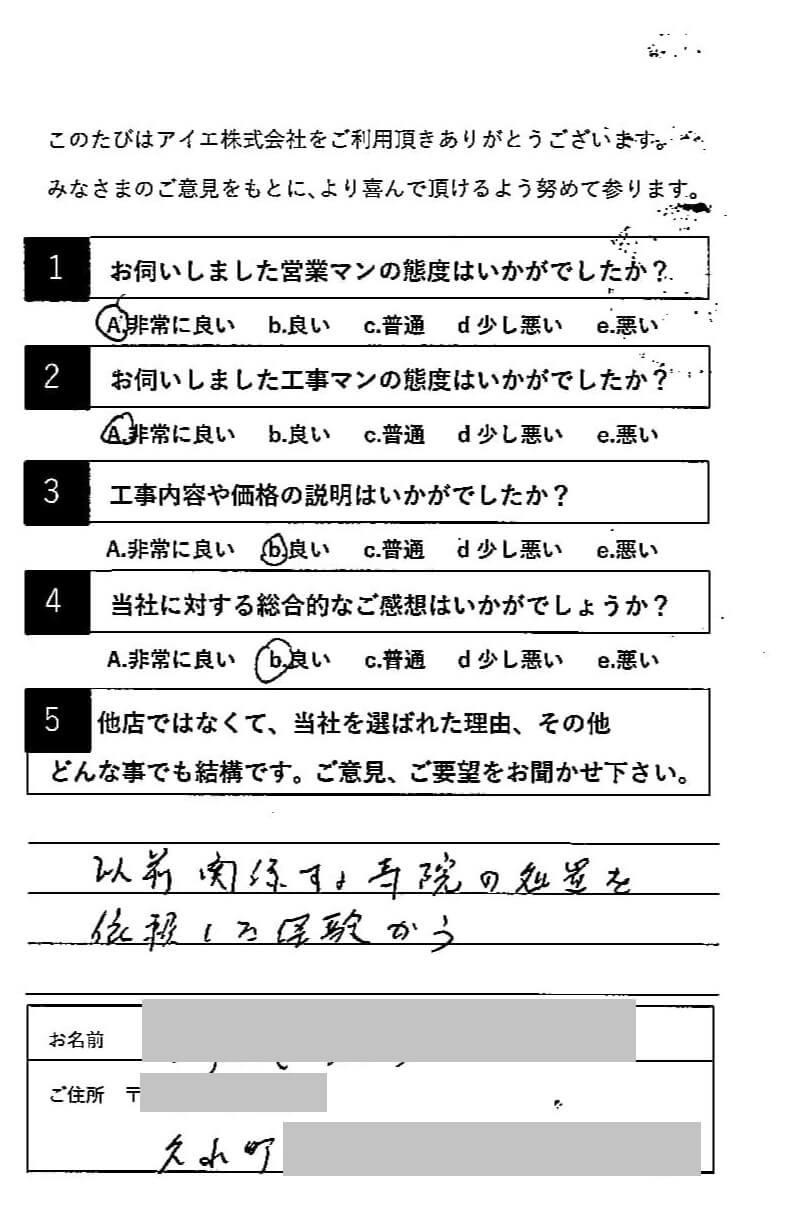 このたびはアイエ株式会社をご利用頂きありがとうございます。
みなさまのご意見をもとに、より喜んで頂けるよう努めて参ります。
1 お伺いしました営業マンの態度はいかがでしたか？
A.非常に良い b.良い c.普通 d 少し悪い e.悪い
2 お伺いしました工事マンの態度はいかがでしたか？
A.非常に良い b.良い c.普通 d 少し悪い e.悪い
3 工事内容や価格の説明はいかがでしたか？
A.非常に良い b.良い c.普通 d 少し悪い e.悪い
4 当社に対する総合的なご感想はいかがでしょうか？
A.非常に良い b.良い c.普通 d 少し悪い e.悪い
5 他店ではなくて、当社を選ばれた理由、その他
どんな事でも結構です。ご意見、ご要望をお聞かせ下さい。
以前関係する寺院の処置を
依頼した経験から
お名前
ご住所 〒
町